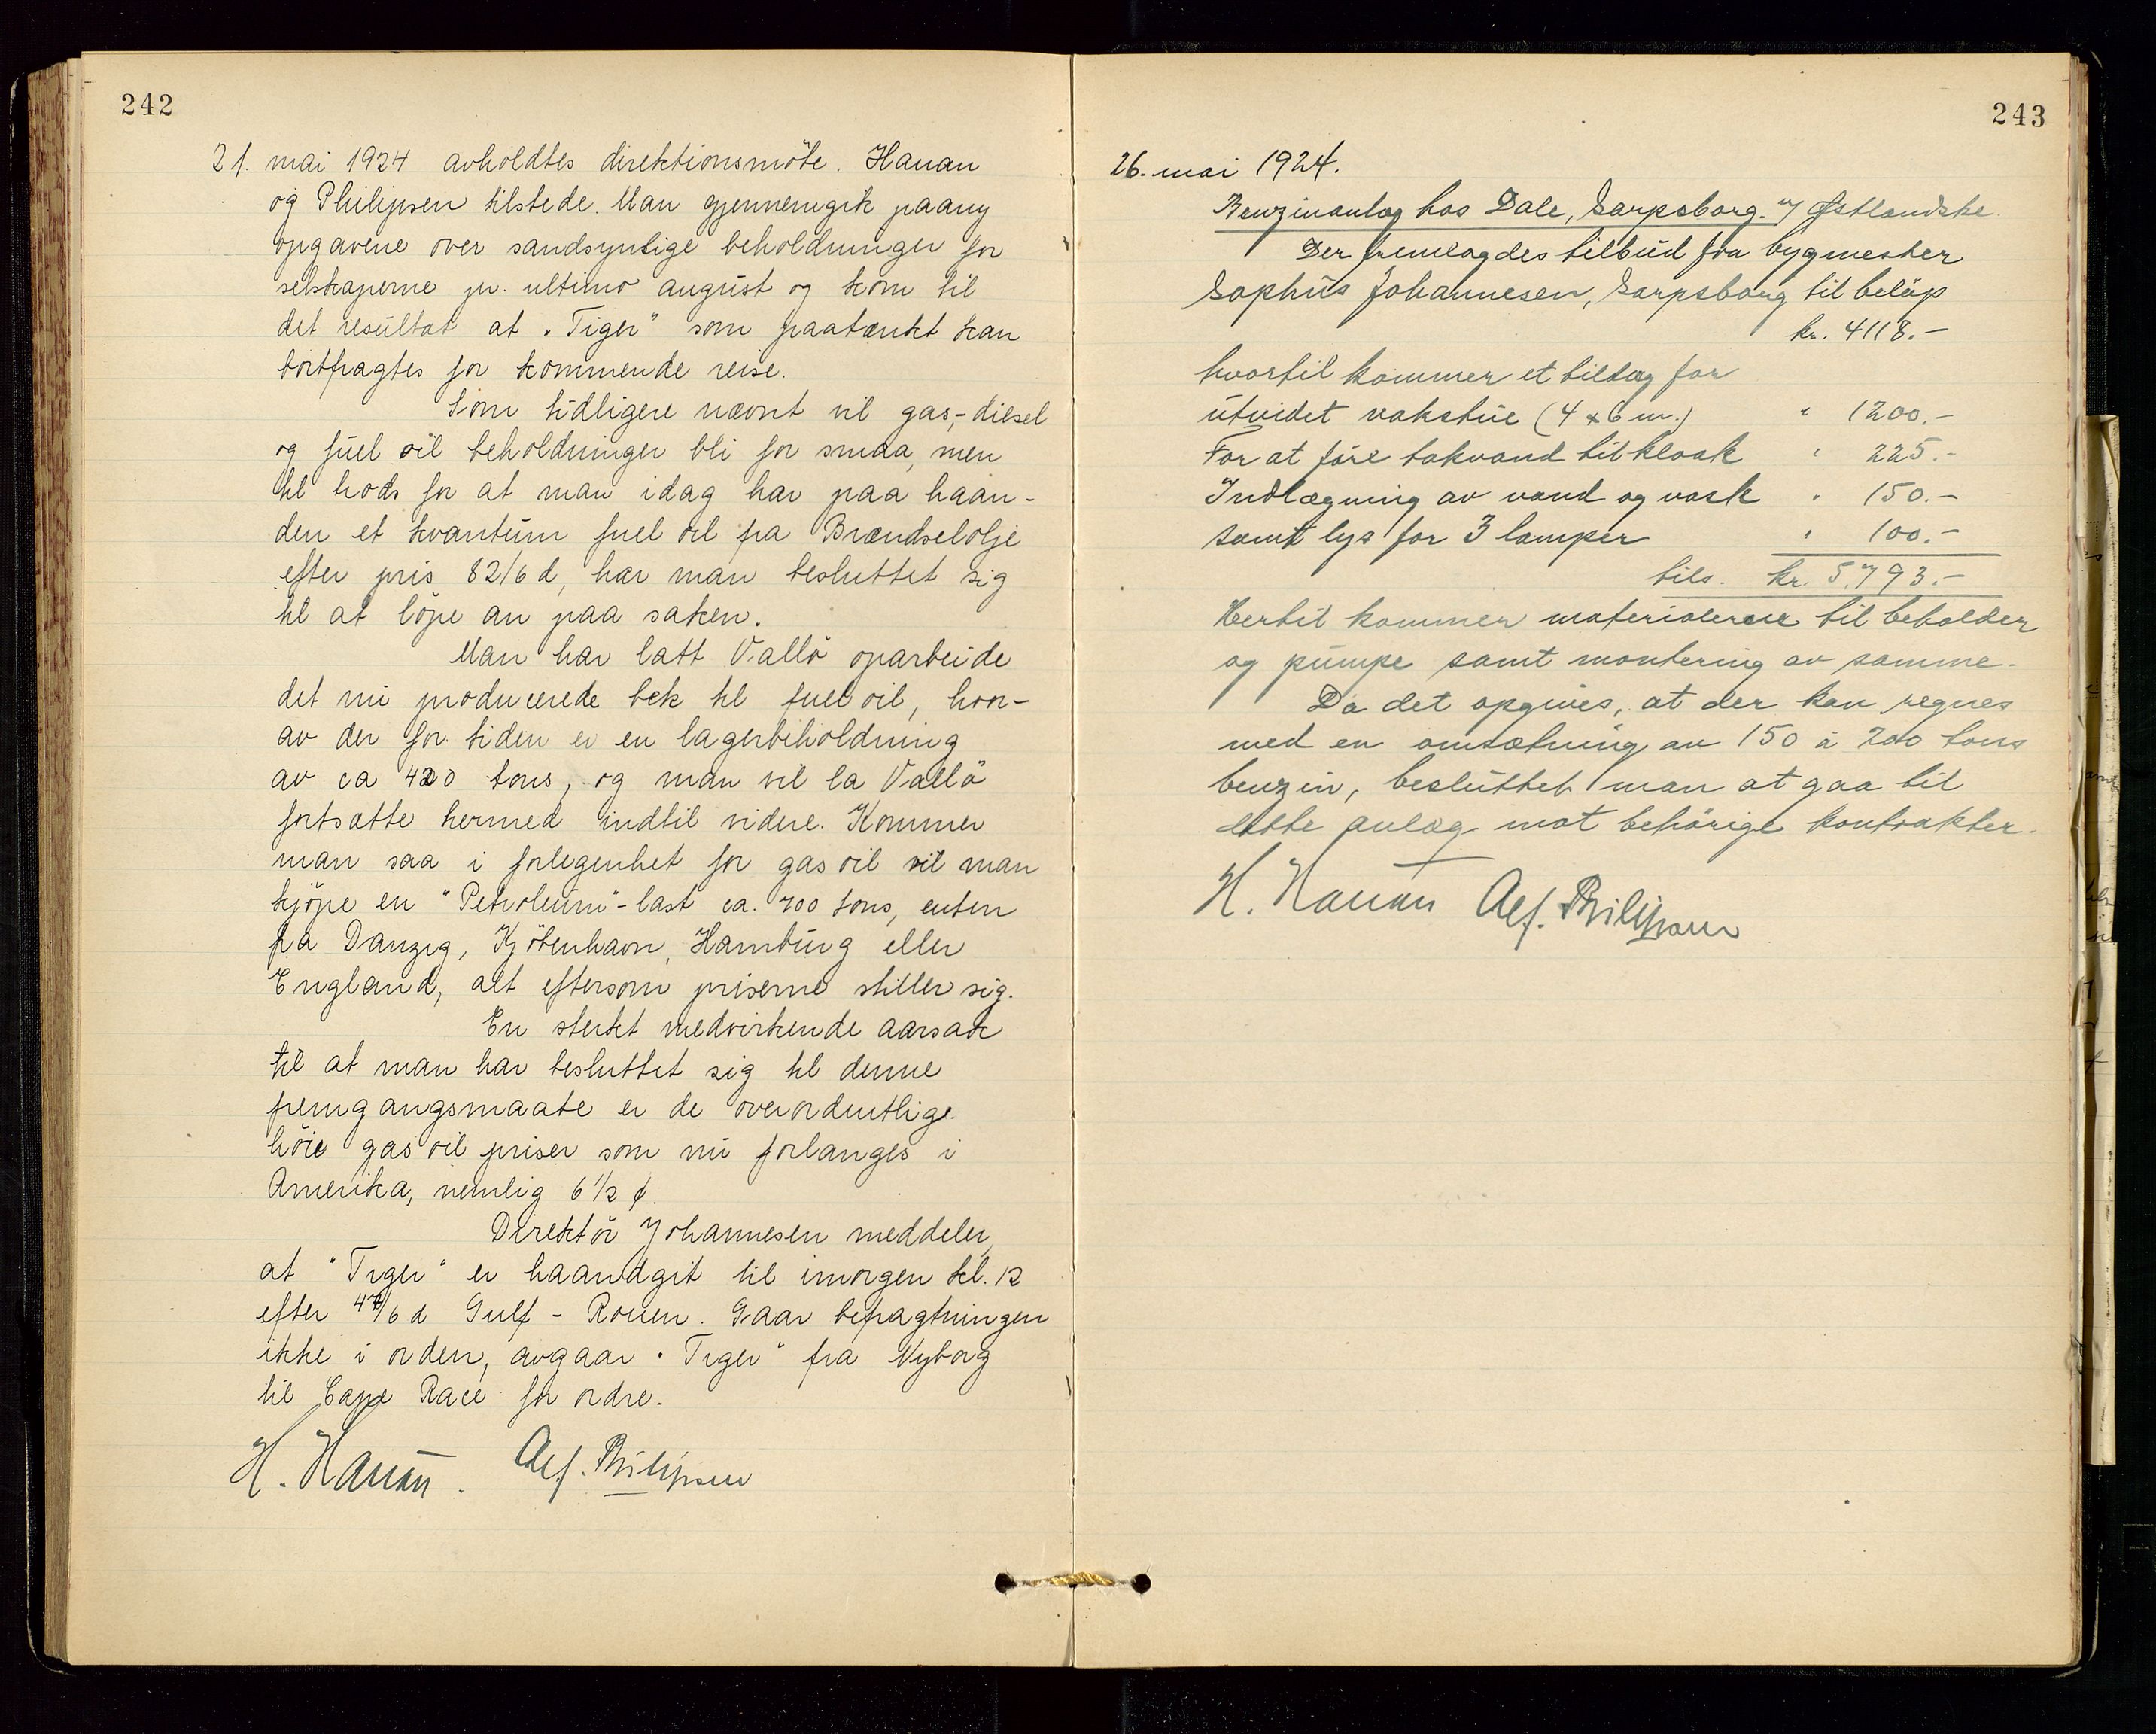 242
21. mai 1924 avholdtes direktionsmöte. Hauan
og Philipsen tilstede. Man gjennemgik paany
opgavene over sandsynlige beholdninger for
selskaperne pr. ultimo august og kom til
det resultat at "Tiger" som paatænkt kan
bortfragtes for kommende reise.
Som tidligere nævnt vil gas-, diesel
og fuel oil beholdninger bli for smaa, men
til trods for at man idag har paa haan-
den et kvantum fuel oil fra Brændselolje
efter pris 82/6 d, har man besluttet sig
til at löpe an paa saken.
Man har latt Vallö oparbeide
det nu producerede bek til fuel oil, hvor-
av der for tiden er en lagerbeholdning
av ca 420 tons, og man vil la Vallö
fortsætte hermed indtil videre. Kommer
man saa i forlegenhet for gas oil vil man
kjöpe en "Petroleum"-last ca. 700 tons, enten
fra Danzig, Kjöbenhavn, Hamburg eller
England, alt eftersom priserne stiller sig.
En sterkt medvirkende aarsak
til at man har besluttet sig til denne
fremgangsmaate er de overordentlige
höie gas oil priser som nu forlanges i
Amerika, nemlig 6 1/2 ¢.
Direktör Johannesen meddeler,
at "Tiger" er haandgit til imorgen kl. 12
efter 47/6 d Gulf - Rouen. Gaar befragtningen
ikke i orden, avgaar "Tiger" fra Nyborg
til Cape Race for ordre.
H. Hauan. Alf. Philipsen
243
26. mai 1924.
Benzinanlæg hos Dale, Sarpsborg. Østlandske.
Der fremlagdes tilbud fra bygmester
Sophus Johannesen, Sarpsborg til beløp
kr. 4118.-
hvortil kommer et tillæg for
utvidet vakstue (4 x 6 m.) " 1200.-
For at före takvand til kloak " 225.-
Indlægning av vand og vask " 150.-
samt lys for 3 lamper " 100.-
tils. kr. 5.793.-
Hertil kommer materialerne til beholder
og pumpe samt montering av samme.
Da det opgives, at der kan regnes
med en omsætning av 150 à 200 tons
benzin, besluttet man at gaa til
dette anlæg mot behörige kontrakter.
H. Hauan Alf. Philipsen